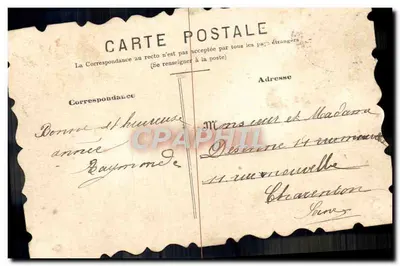 CARTE POSTALE
La Correspondance au recto n'est pas acceptée par tous les pays étrangers
(Se renseigner à la poste)
Correspondance
Adresse
Bonne et heureuse
année
Raymonde
Monsieur et Madame
11 rue neuville
Charenton
Seine
CPAPHIL